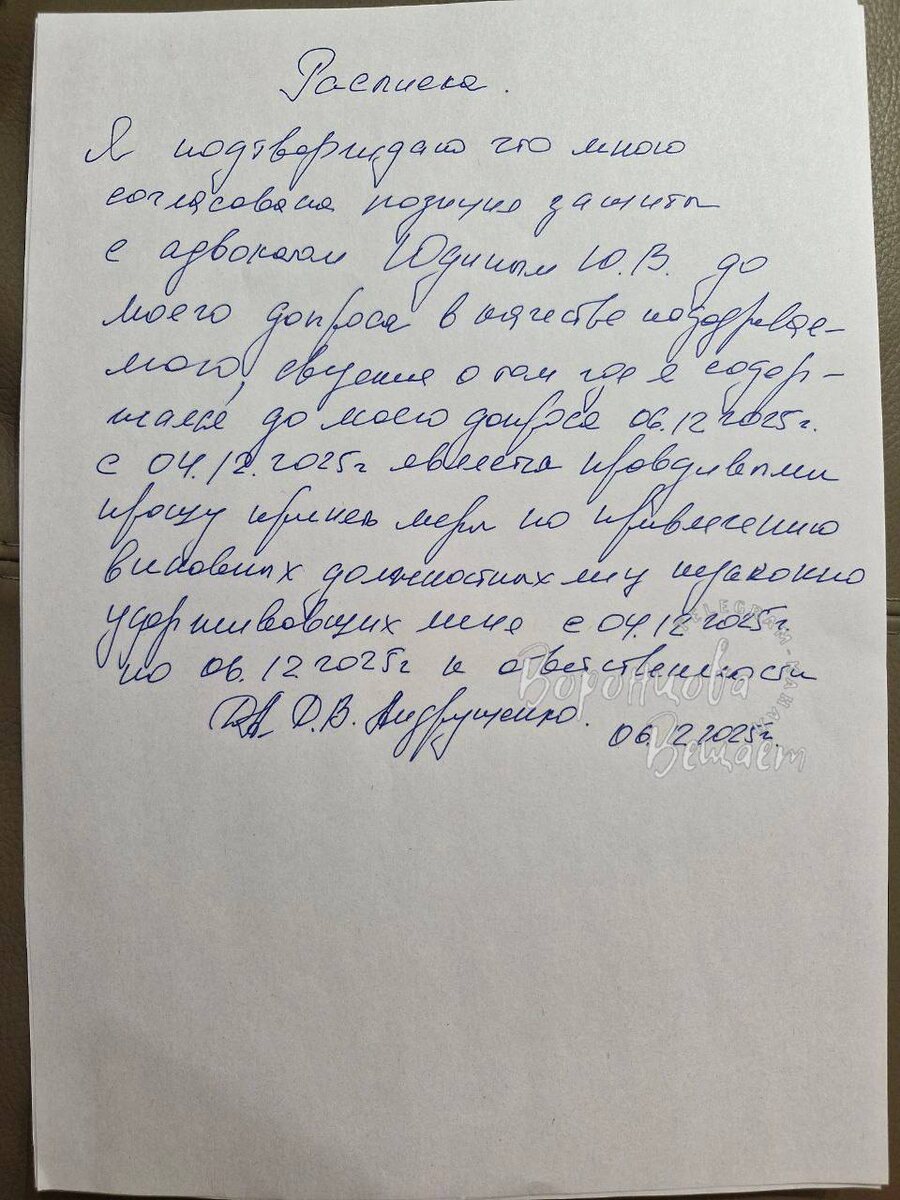 Расписка.
Я подтверждаю что мною
согласована позиция защиты
с адвокатом Юдиным Ю.В. до
моего допроса в качестве подозревае-
мого, сведения о том где я содер-
жался до моего допроса 06.12 2025г.
с 04.12.2025г являются правдивыми
прошу принять меры по привлечению
виновных должностных лиц незаконно
удерживающих меня с 04.12 2025г.
по 06.12 2025г к ответственности
Д.В. Андрущенко.
06.12 2025г.
TELEGRAM-КАНАЛ
Воронцова
Вещает